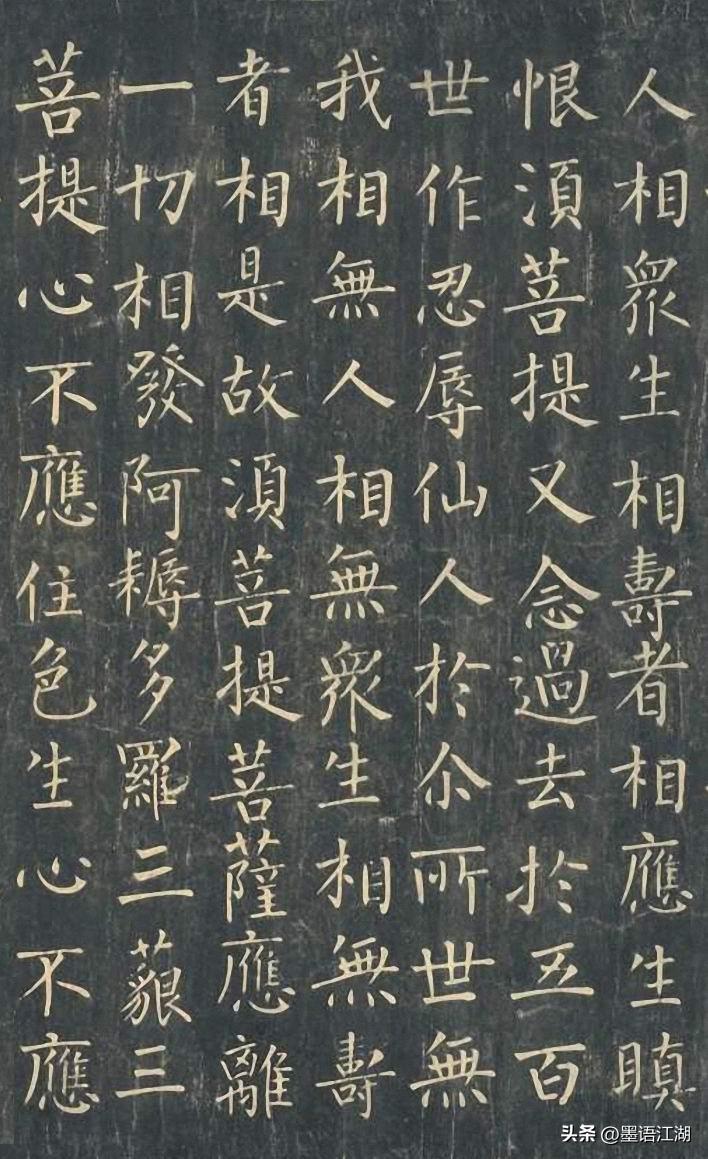 人相眾生相壽者相應生瞋
恨湏菩提又念過去於五百
世作忍辱仙人於尒所世無
我相無人相無眾生相無壽
者相是故湏菩提菩薩應離
一切相發阿耨多羅三藐三
菩提心不應住色生心不應
头条 @墨语江湖